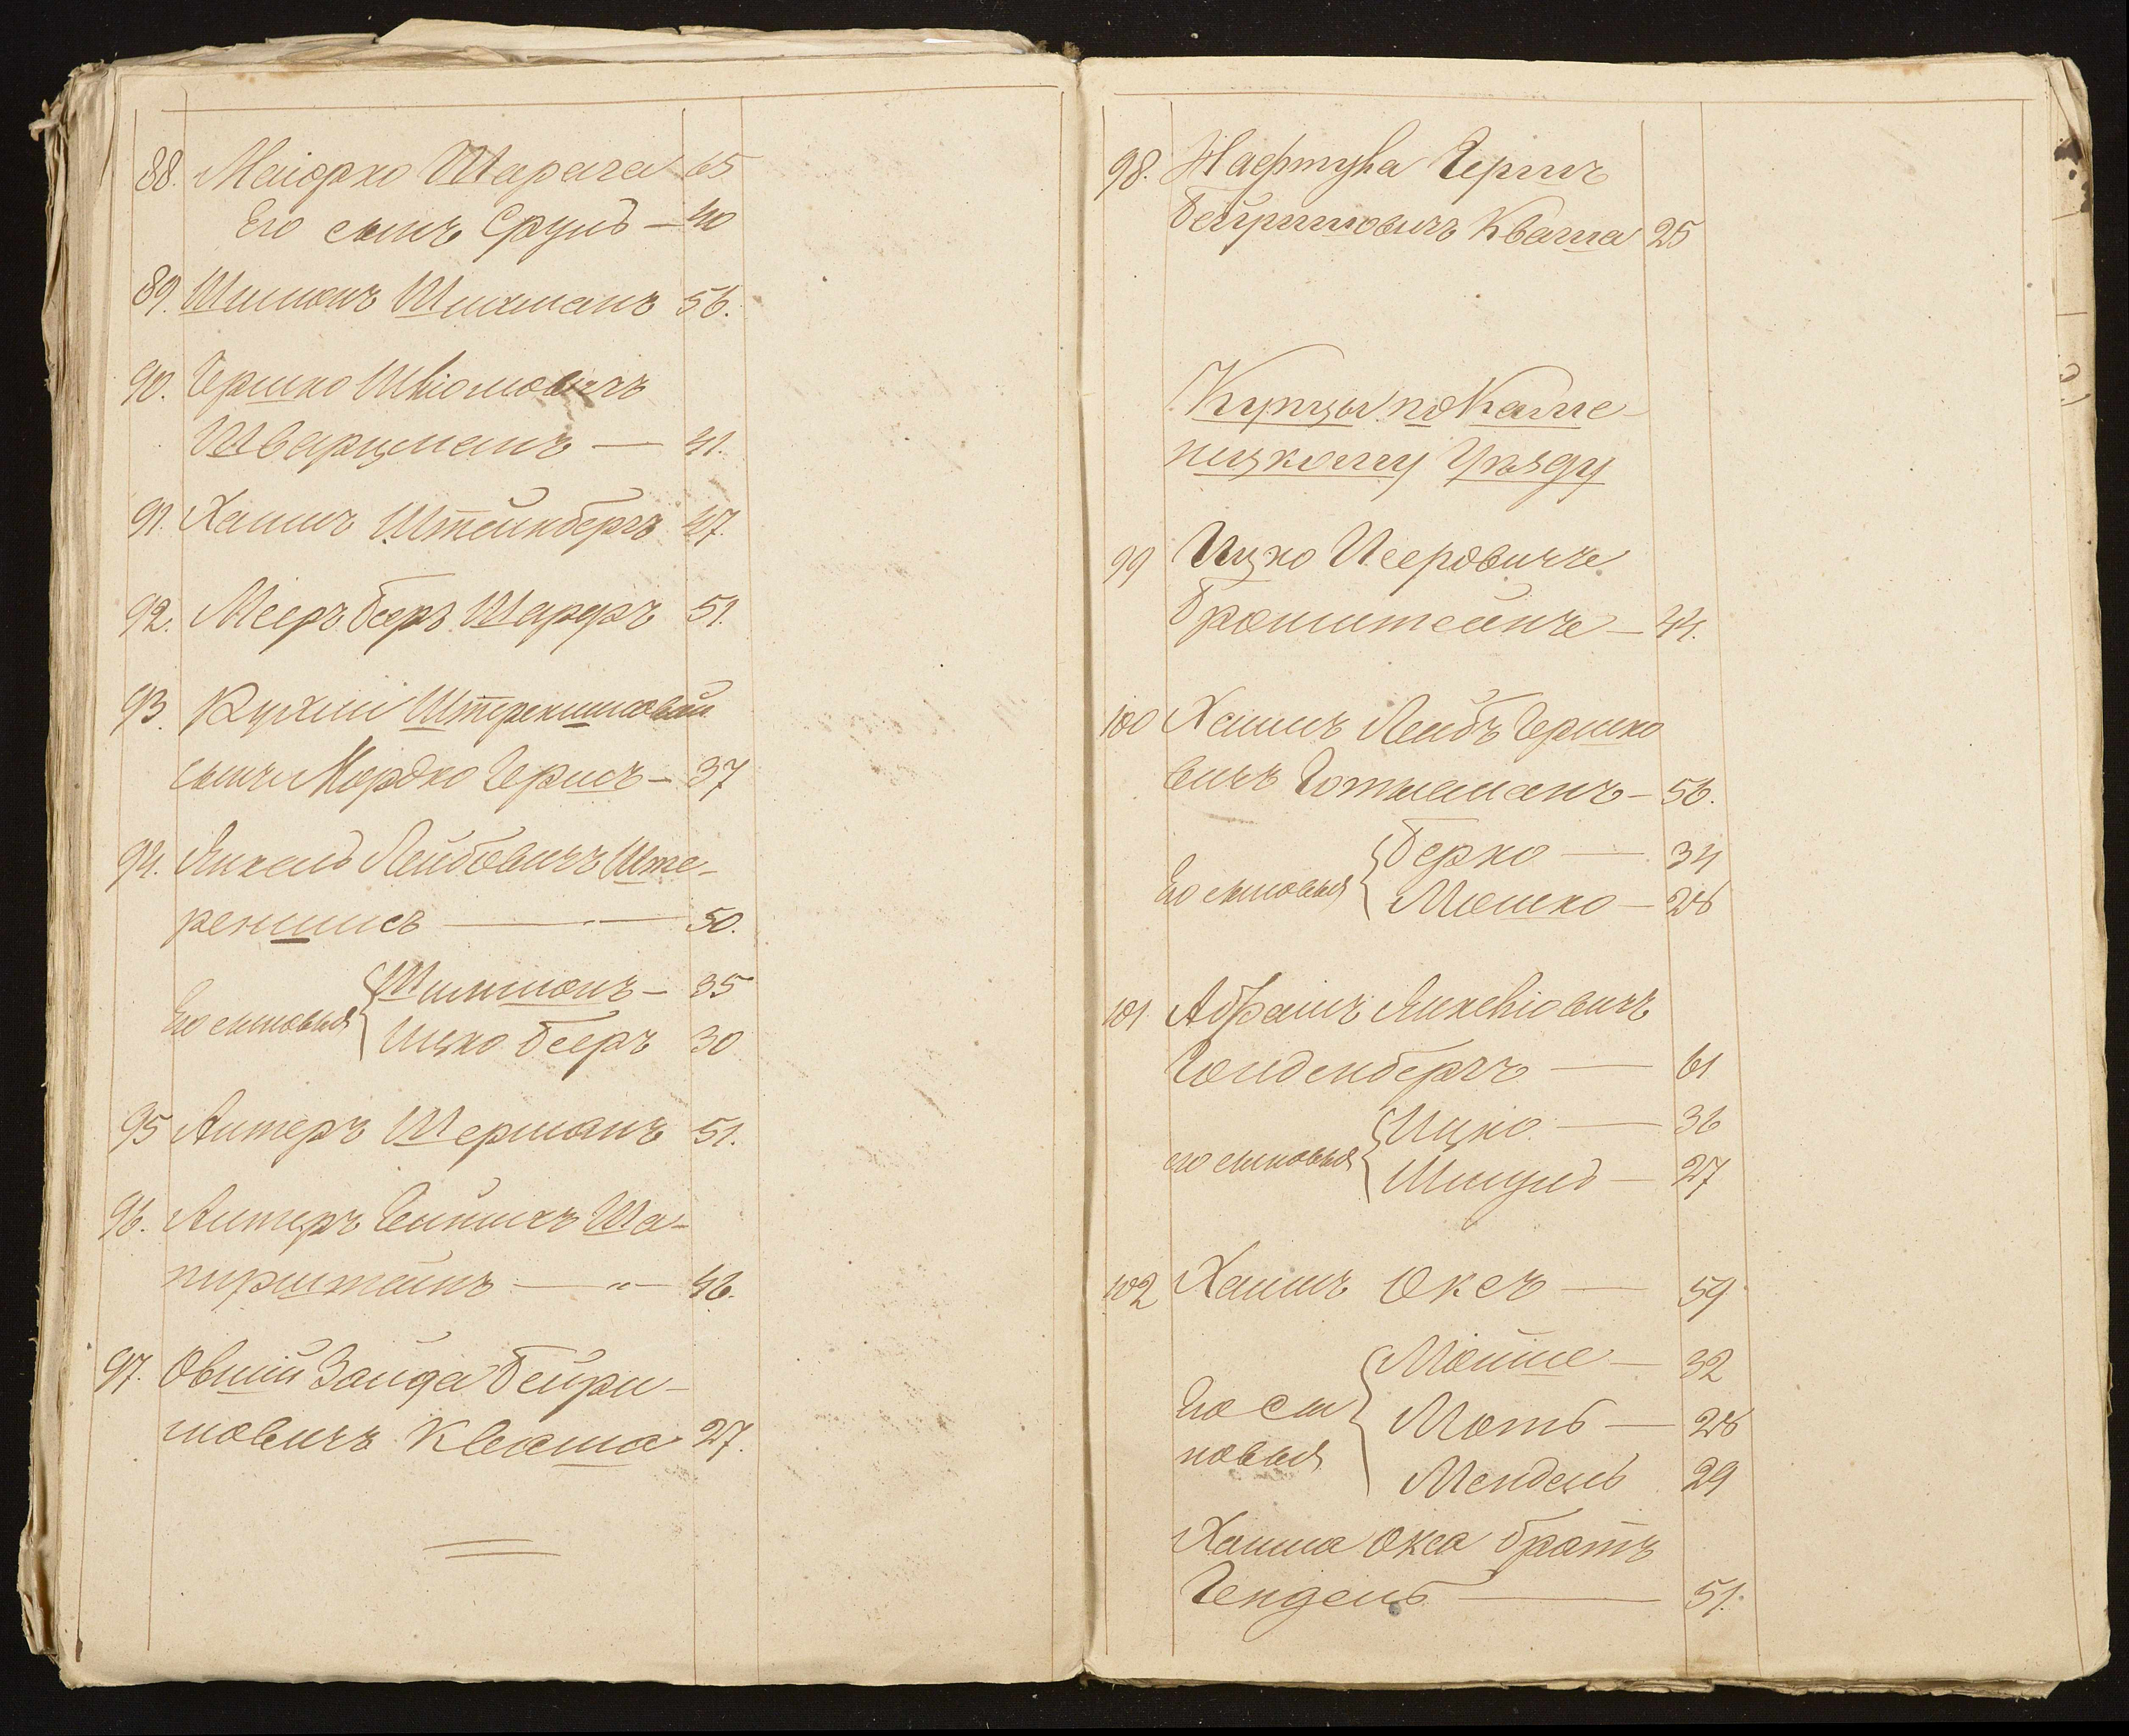 88. Маіорко Шарага 65
Его сынъ Сруль — 40
89. Шимонъ Шихманъ 56.
90. Гершко Шліомовичъ
Шварцманъ — 41.
91. Хаимъ Штейнбергъ 47.
92. Мееръ Бееръ Шарфъ 51.
93. Рухли
сынъ Мордко Герисъ — 37
94. Янкель Лейбовичъ Ште-
реншисъ — 50.
Его сыновья { Шимшонъ — 35
Ицко Бееръ 30
95 Алтеръ Шерманъ 51.
96. Алтеръ Гейнихъ Ша-
пирштейнъ — „ — 46.
97. Овшій Зайда Бейри-
шовичъ Кваша 27.
98. Нафтула Гершъ
Бейришовичъ Кваша 25
Купцы по Каме-
ницкому Уѣзду
99 Ицко Исеровичъ
Бронштейнъ — 44.
100 Хаимъ Лейбъ Гершко
вичъ Готлибманъ — 56.
Его сыновья { Берко — 34
Мошко — 28
101 Абрамъ Янкеліовичъ
Гольденбергъ — 61
его сыновья { Ицко — 36
Шмуль — 27
102 Хаимъ Оксъ — 59
Его сы { Мойше — 32
Моть — 28
новья Мендель 29
Хаима Окса братъ
Гендель — 51.